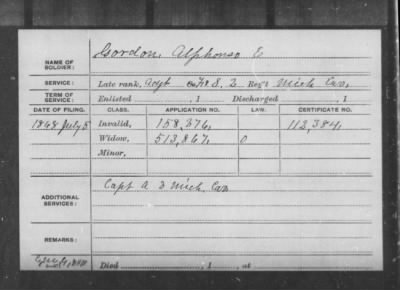 NAME OF SOLDIER: Gordon, Alphonso E
SERVICE: Late rank, S. 2 Reg't Mich Cav,
TERM OF SERVICE: Enlisted , 1 Discharged , 1
DATE OF FILING. CLASS. APPLICATION NO. LAW. CERTIFICATE NO.
1868 July 5 Invalid, 158,376, 112,384,
Widow, 513,867, 0
Minor,
ADDITIONAL SERVICES: Capt A 2 Mich. Cav
REMARKS:
Died , 1 , at